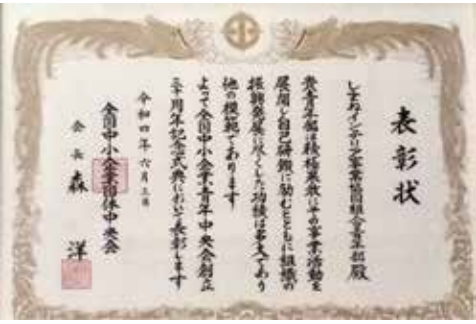 表彰状
しまねインテリア事業協同組合青年部殿
貴青年部は積極果敢にその事業活動を
展開し自己研鑚に励むとともに組織の
振興発展に尽くした功績は多大であり
他の模範であります
よって全国中小企業青年中央会創立
三十周年記念式典において表彰します
令和四年六月三日
全国中小企業団体中央会
会長 森 洋